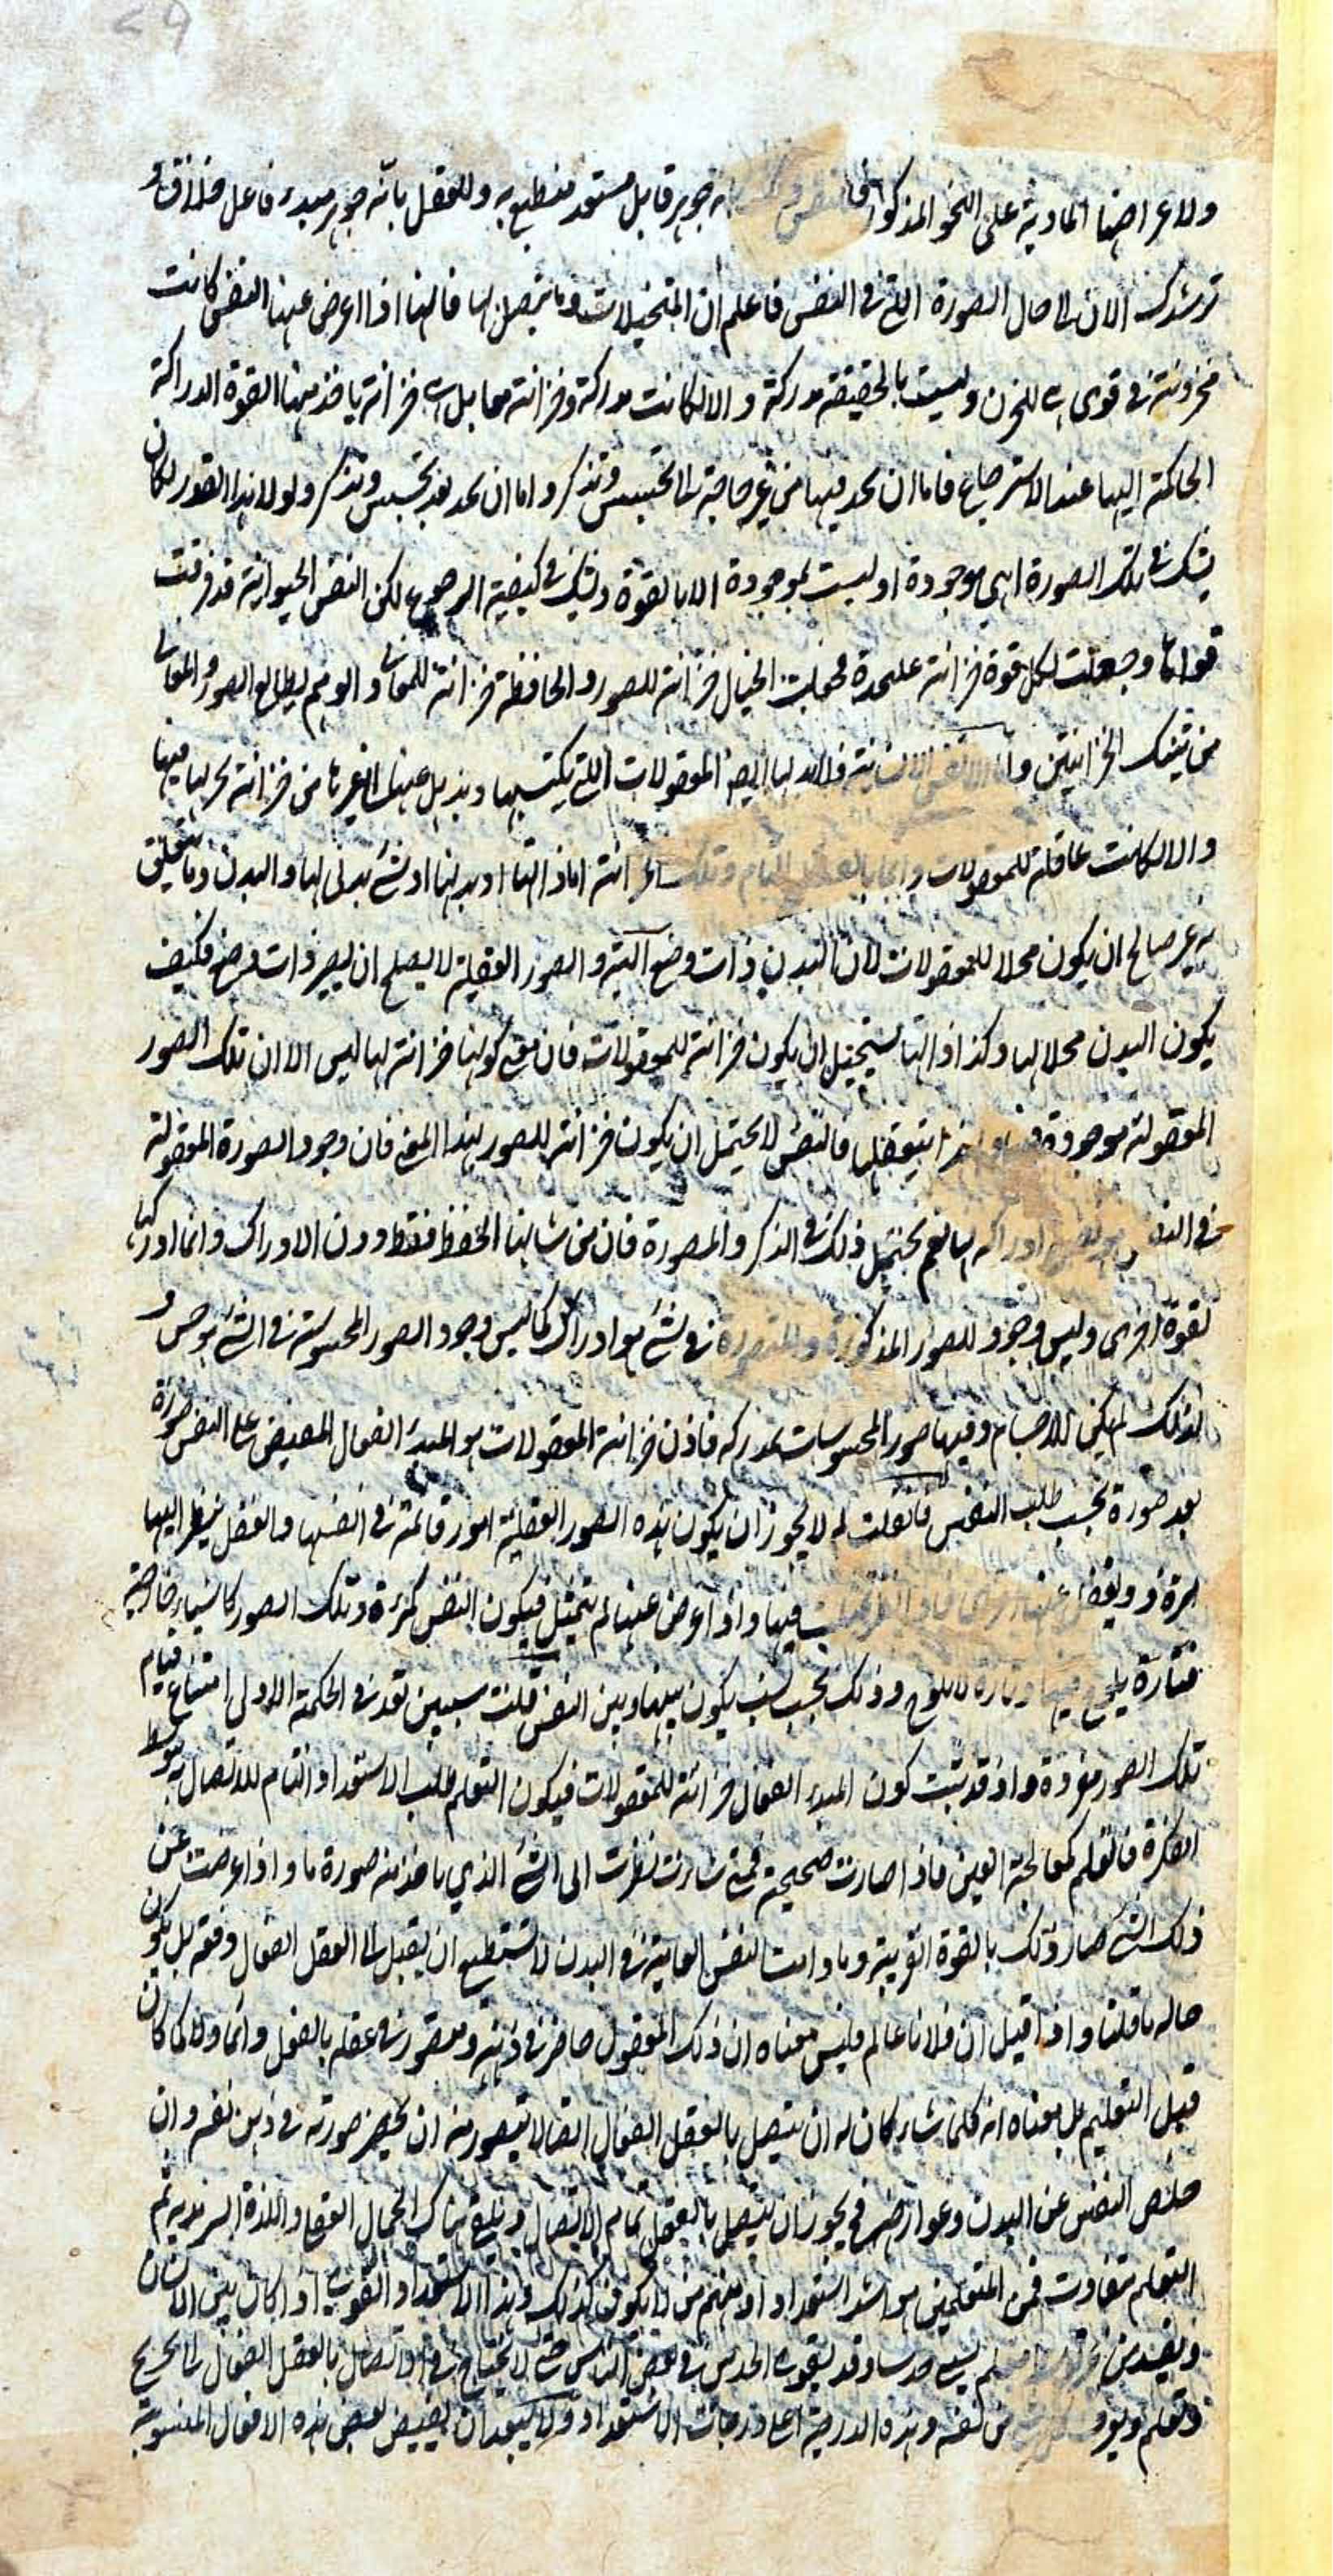 ولاعراضها المادية على النحو المذكور فالنفس جوهر قابل مستعد منطبع به وللعقل بانه جوهر مبدء فاعل فلا فرق و
نرشدك الان الى حال الصورة التى فى النفس فاعلم ان المتخيلات وما يتصل بها فانها اذا اعرض عنها النفس كانت
مخزونة فى قوى هى للخزن وليست بالحقيقة مدركة والا لكانت مدركة وخزانة معا بل هى خزانة ياخذ منها القوة الدراكة
الحاكمة اليها عند الاسترجاع فاما ان تجد فيها من غير حاجة الى تجسس وتذكر واما ان تجد بعد تجسس وتذكر ولولا هذا القدر لكان
يشك فى تلك الصورة اهى موجودة او ليست بموجودة الا بالقوة ويشك فى كيفية الرجوع لكن النفس الحيوانية قد فرقت
قواها وجعلت لكل قوة خزانة عليحدة فجعلت الخيال خزانة للصور والحافظة خزانة للمعانى والوهم ليطالع الصور والمعانى
من تينك الخزانتين واما النفس الانسانية فلابد لها ايضا المعقولات التى يكتسبها ويذهل عنها الى غيرها من خزانة تحزنها فيها
والا لكانت عاقلة للمعقولات دائما بالفعل التام وتلك الخزانة اما ذاتها او بدنها او شئ بدنى لها والبدن وما يتعلق
به غير صالح ان يكون محلا للمعقولات لان البدن ذات وضع البتة والصور العقلية لا يصلح ان يصير ذات وضع فكيف
يكون البدن محلا لها وكذا ذاتها يستحيل ان يكون خزانة للمعقولات فان معنى كونها خزانة لها ليس الا ان تلك الصور
المعقولة موجودة فيها يتعقلها فالنفس لا يحتمل ان يكون خزانة للصور بهذا المعنى فان وجود الصورة المعقولة
فى النفس هو نفس ادراكه لها نعم يحتمل ذلك فى الذكر والمصورة فان من شانها الحفظ فقط دون الادراك وانما ادراكها
لقوة اخرى وليس وجود للصور المذكورة والمتصورة فى شئ هو ادراك كما ليس وجود الصور المحسوسة فى الشئ هو حس و
لذلك لم يكن للاجسام وفيها صور المحسوسات بمدركه فاذن خزانة المعقولات هو المبدء الفعال المفيض على النفس صورة
بعد صورة بحسب طلب النفس فان قلت لم لا يجوز ان يكون هذه الصور العقلية امور قائمة فى انفسها والعقل ينظر اليها
مرة ويغفل عنها اخرى فاذا نظر تمثلت فيها واذا اعرض عنها لم يتمثل فيكون النفس كمرآة وتلك الصور كاشياء خارجية
فتارة يلوح فيها وتارة لا يلوح وذلك بحسب نسب يكون بينها وبين النفس قلت سيبين بعد فى الحكمة الاولى امتناع قيام
تلك الصور مفردة واذ قد ثبت كون المبدء الفعال خزانة للمعقولات فيكون التعلم طلب الاستعداد التام للاتصال بتوسط
الفكرة فالتعلم كمعالجة العين فاذا صارت صحيحة فمتى شاءت نظرت الى الشئ الذي ياخذ منه صورة ما واذا اعرضت عن
ذلك الشئ صار ذلك بالقوة القريبة وما دامت النفس العامية فى البدن لا تستطيع ان يقبل الى العقل الفعال دفعة بل يكون
حاله ما قلنا واذا قيل ان فلانا عالم فليس معناه ان ذلك المعقول حاضر فى ذهنه ومتصور فى عقله بالفعل دائما ولا كما كان
قبل التعليم بل معناه انه كلما شاء كان له ان يتصل بالعقل الفعال اتصالا يتصور منه ان يحضر صورته فى ذهن نفسه وان
خلص النفس عن البدن وعوارضه فح يجوز ان يتصل بالعقل تمام الاتصال ويلقى هناك الجمال العقلى واللذة السرمدية ثم
التعلم متفاوت فمن المتعلمين هو اشد استعدادا ومنهم من لا يكون كذلك وهذا الاستعداد القوى اذا كان بين الانسان
وبين نفسه من غير يسمى حدسا وقد يقوى الحدس فى بعض الناس حتى لا يحتاج فى الاتصال بالعقل الفعال الى تخريج
وتعليم من نفسه وهذه الدرجة اعلى درجات الاستعداد ولا يبعد ان يفيض بعض هذه الافعال المنسوبة